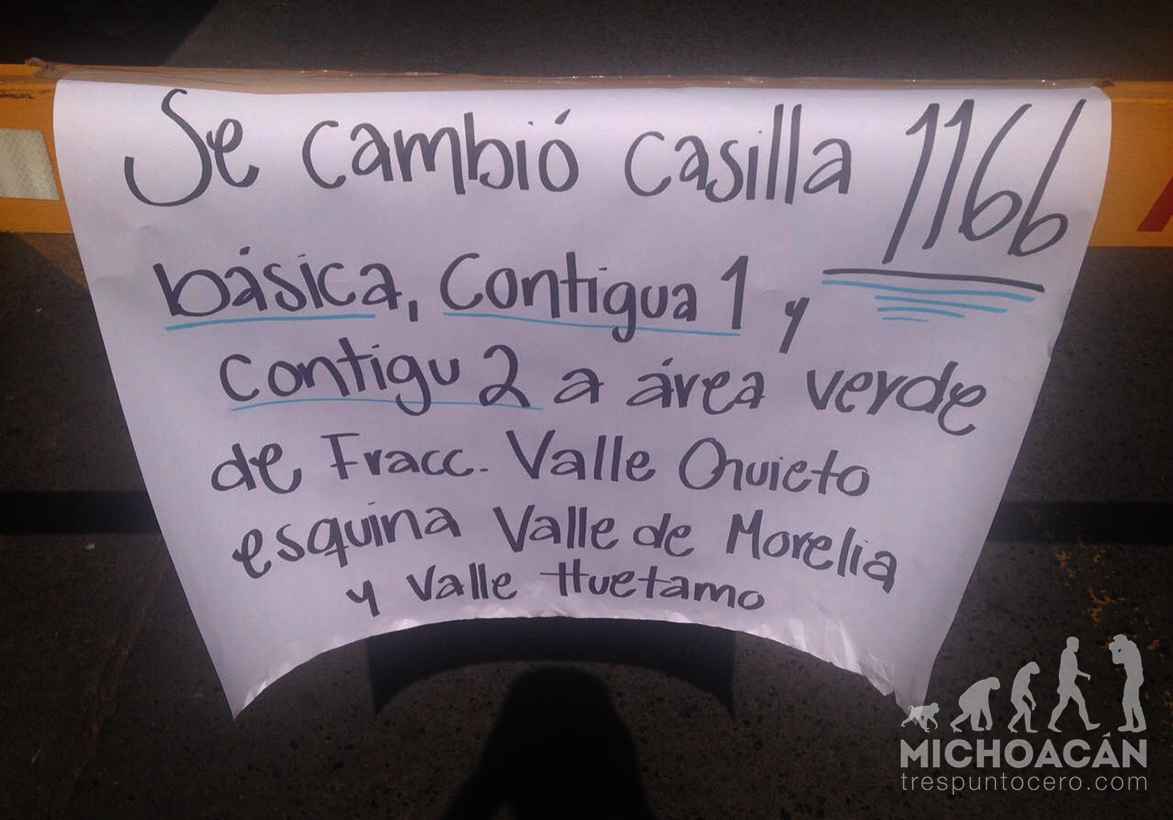 Se cambió casilla 1166
básica, Contigua 1 y
Contigu 2 a área verde
de Fracc. Valle Quieto
esquina Valle de Morelia
y Valle Huetamo
MICHOACÁN
trespuntocero.com